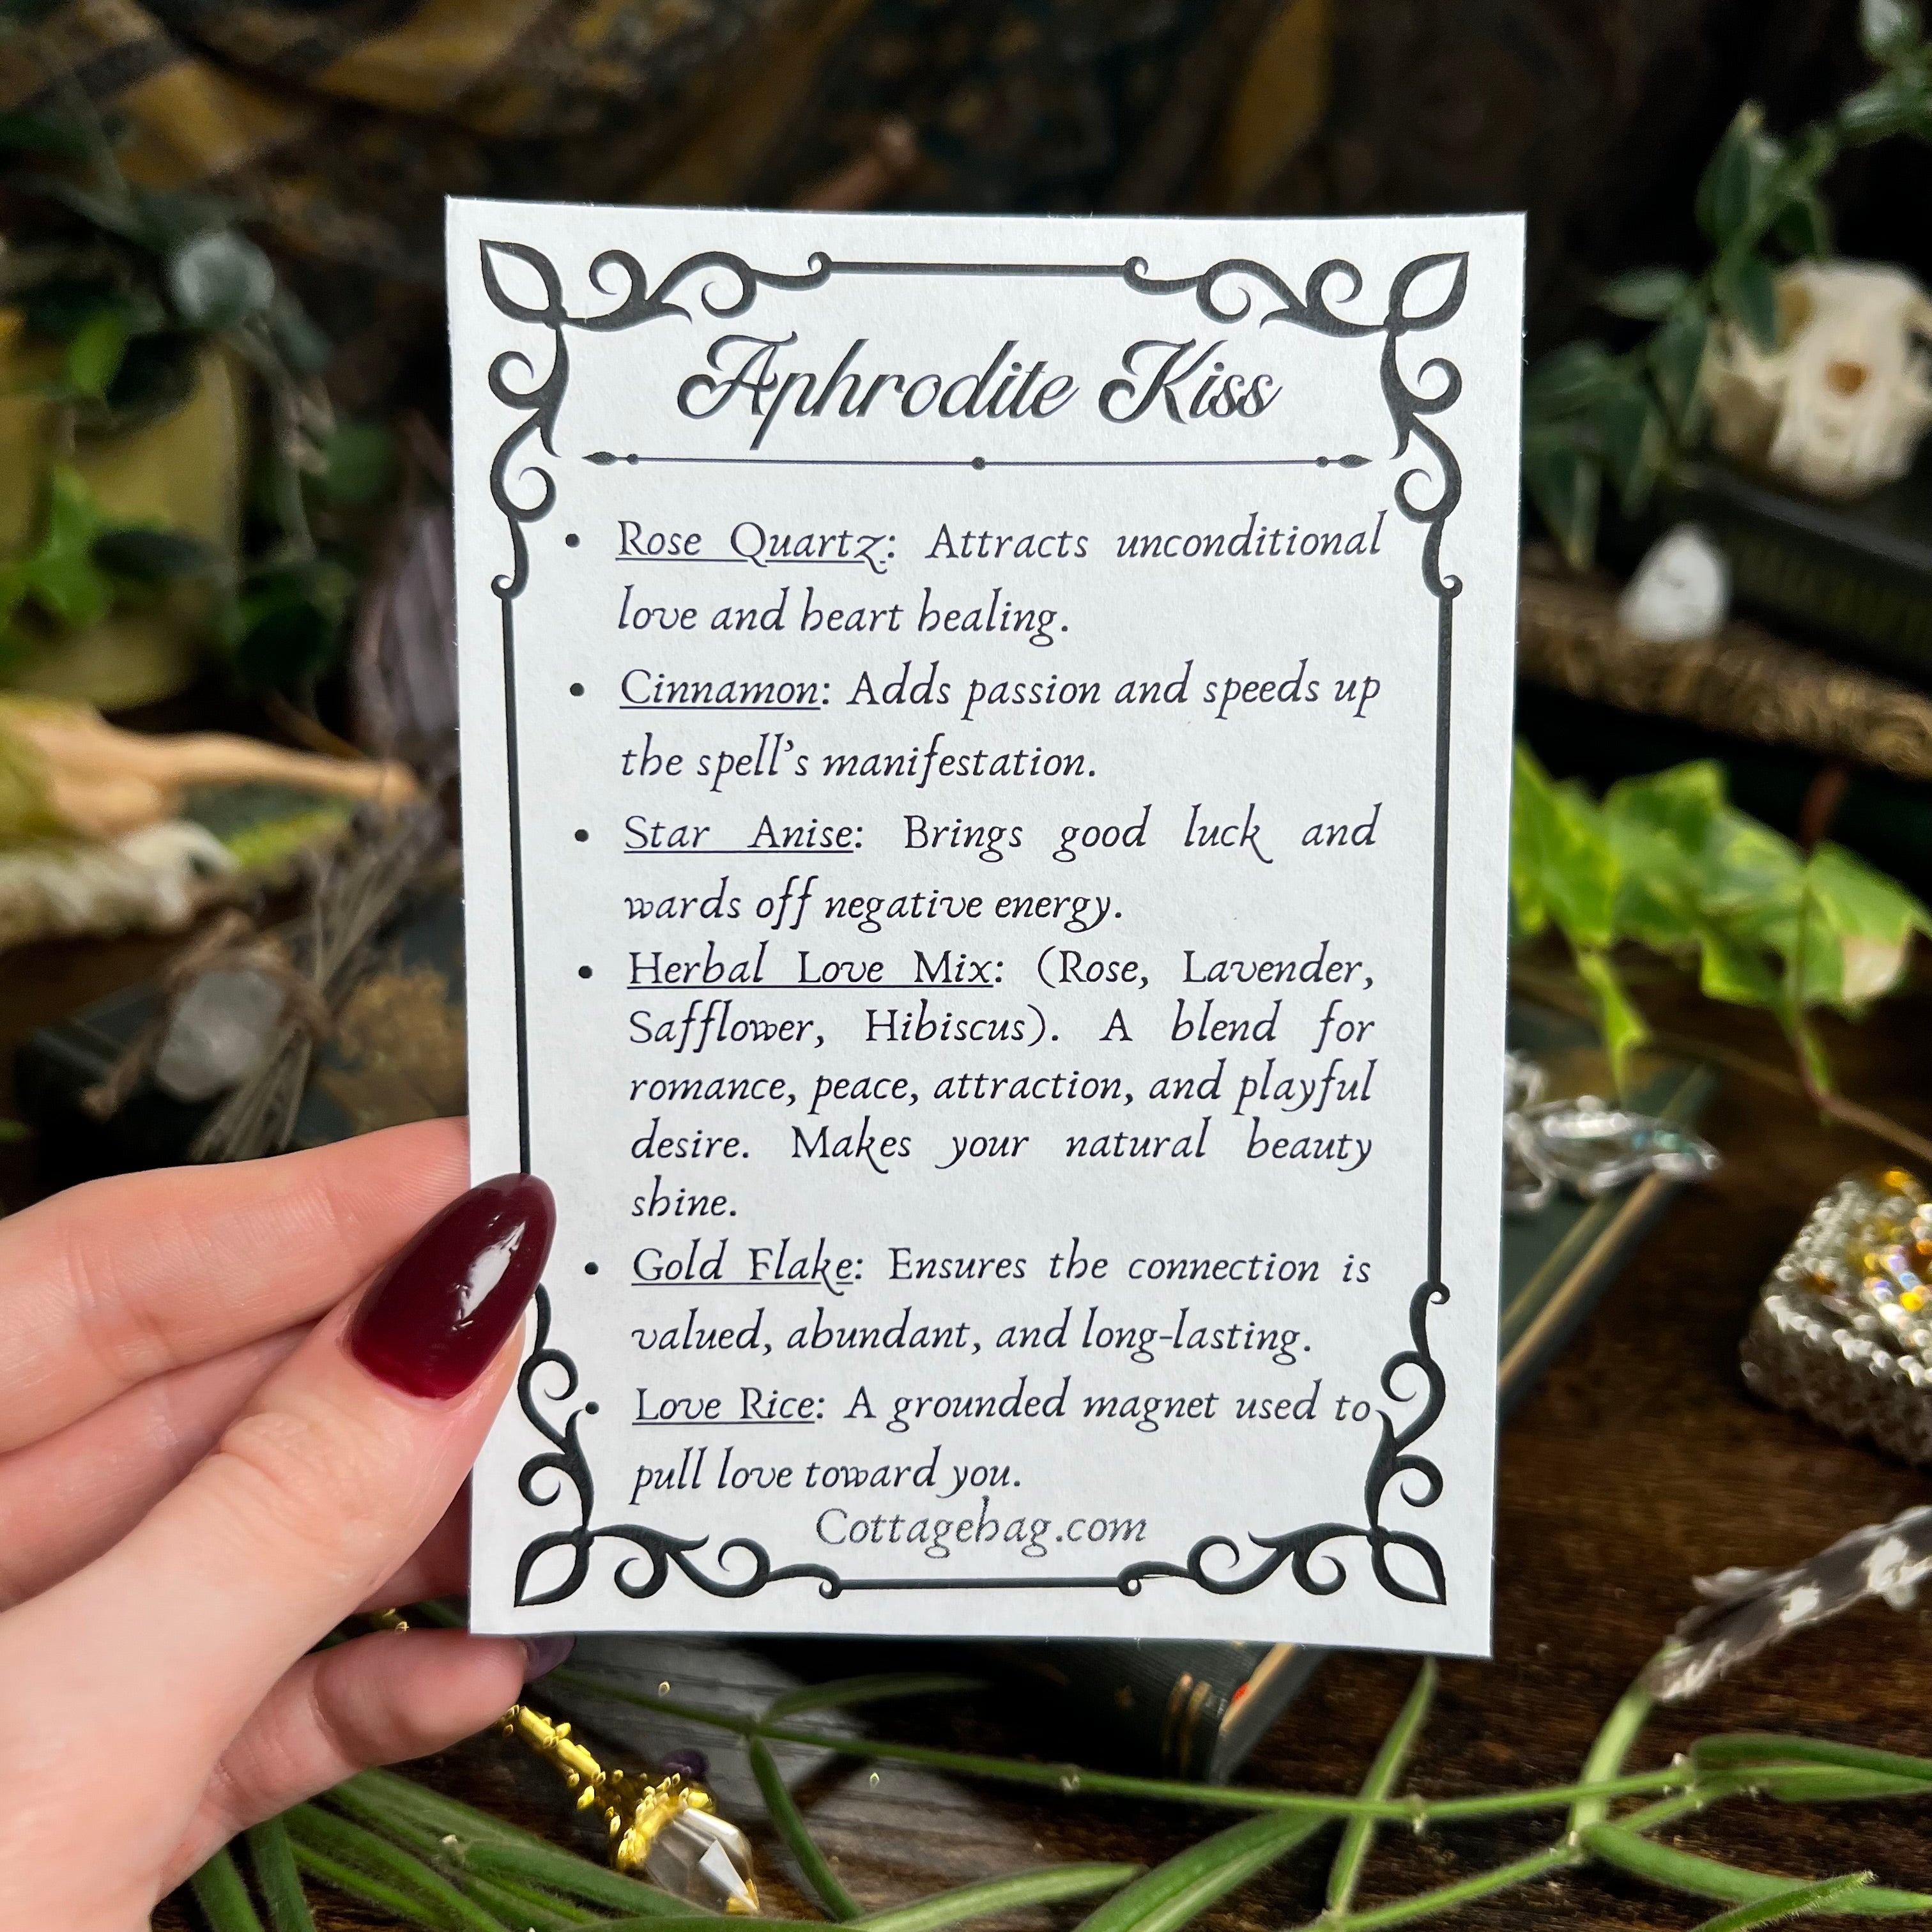 Aphrodite Kiss
• Rose Quartz: Attracts unconditional
love and heart healing.
• Cinnamon: Adds passion and speeds up
the spell's manifestation.
• Star Anise: Brings good luck and
wards off negative energy.
• Herbal Love Mix: (Rose, Lavender,
Safflower, Hibiscus). A blend for
romance, peace, attraction, and playful
desire. Makes your natural beauty
shine.
• Gold Flake: Ensures the connection is
valued, abundant, and long-lasting.
• Love Rice: A grounded magnet used to
pull love toward you.
Cottagehag.com